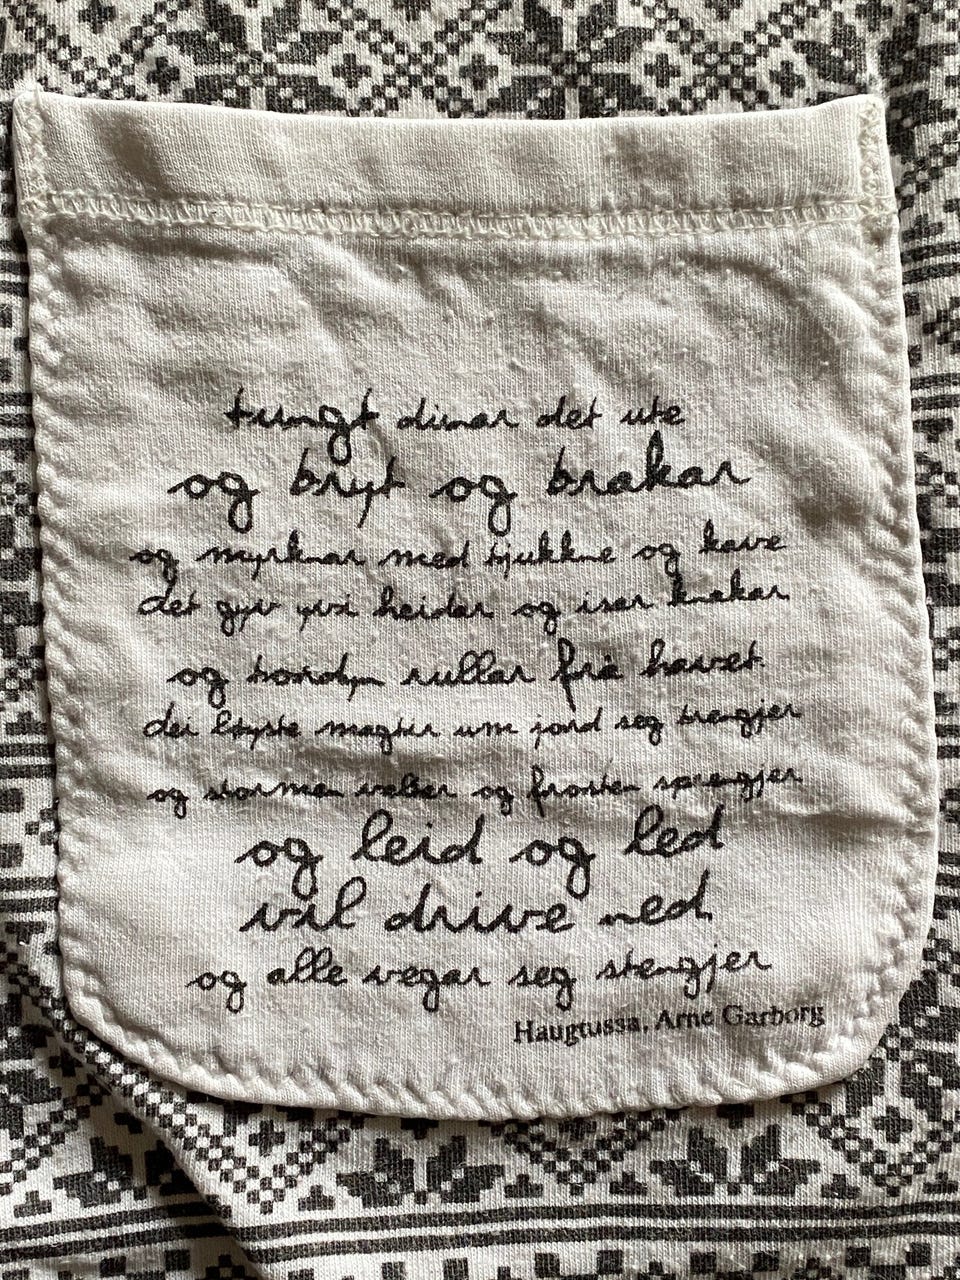 tungt dunar det ute
og bryt og brakar
og myrknar med tjukkne og kave
det gyv yvi heidar og isar knekar
og tordyn rullar frå havet.
dei løynte magtir um jord seg trengjer
og stormen velter og frosten sprengjer
og leid og led
vil drive ned
og alle vegar seg stengjer
Haugtussa, Arne Garborg